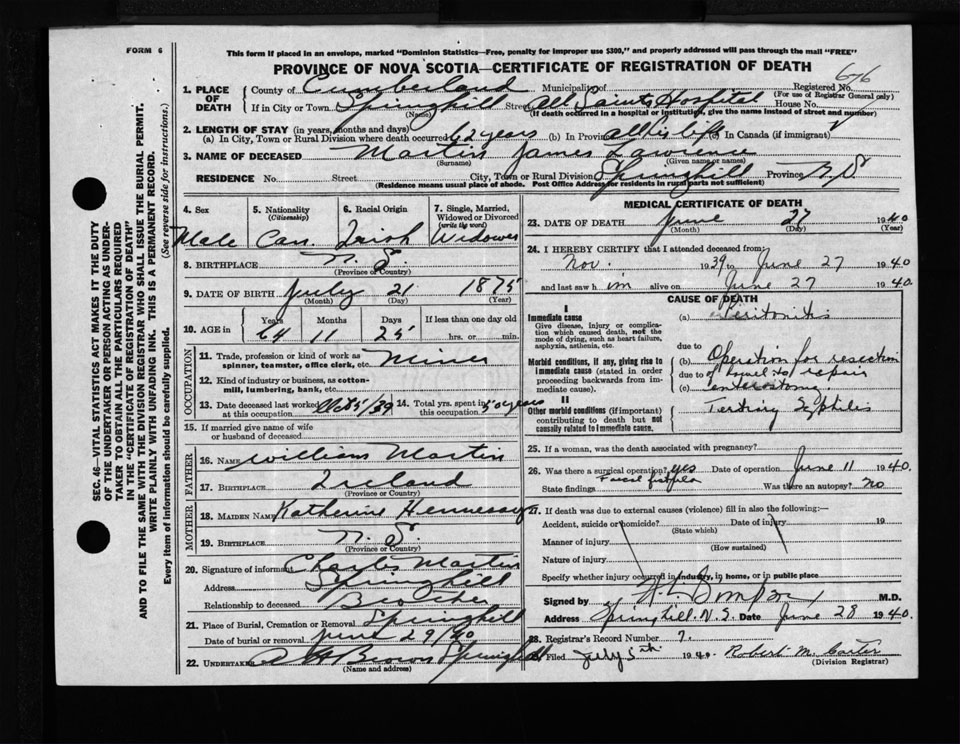 FORM 6
This form if placed in an envelope, marked "Dominion Statistics—Free, penalty for improper use $300," and properly addressed will pass through the mail "FREE"
PROVINCE OF NOVA SCOTIA—CERTIFICATE OF REGISTRATION OF DEATH
676
1. PLACE OF DEATH
County of Cumberland Municipality of Registered No.
(For use of Registrar General only)
If in City or Town Springhill Street All Saints Hospital House No.
(Name) (If death occurred in a hospital or institution, give the name instead of street and number)
2. LENGTH OF STAY (in years, months and days)
(a) In City, Town or Rural Division where death occurred 62 years (b) In Province all his life (c) In Canada (if immigrant)
3. NAME OF DECEASED Martin James Lawrence
(Surname) (Given name or names)
RESIDENCE No. Street City, Town or Rural Division Springhill Province N S
(Residence means usual place of abode. Post Office Address for residents in rural parts not sufficient)
4. Sex Male
5. Nationality (Citizenship) Can.
6. Racial Origin Irish
7. Single, Married, Widowed or Divorced (write the word) Widower
8. BIRTHPLACE N. S.
(Province or Country)
9. DATE OF BIRTH July 21 1875
(Month) (Day) (Year)
10. AGE in Years 64 Months 11 Days 25 If less than one day old hrs. or min.
OCCUPATION
11. Trade, profession or kind of work as spinner, teamster, office clerk, etc. Miner
12. Kind of industry or business, as cotton-mill, lumbering, bank, etc.
13. Date deceased last worked at this occupation /39 14. Total yrs. spent in this occupation 50 years
15. If married give name of wife or husband of deceased
FATHER
16. NAME William Martin
17. BIRTHPLACE Ireland
(Province or Country)
MOTHER
18. MAIDEN NAME Katherine Hennessay
19. BIRTHPLACE N. S.
(Province or Country)
20. Signature of informant Charles Martin
Address Springhill
Relationship to deceased Brother
21. Place of Burial, Cremation or Removal Springhill
Date of burial or removal June 29/40
22. UNDERTAKER Brown Springhill
(Name and address)
MEDICAL CERTIFICATE OF DEATH
23. DATE OF DEATH June 27 1940
(Month) (Day) (Year)
24. I HEREBY CERTIFY that I attended deceased from:
Nov. 1939 to June 27 1940
and last saw h im alive on June 27 1940.
CAUSE OF DEATH
I
Immediate cause
Give disease, injury or complication which caused death, not the mode of dying, such as heart failure, asphyxia, asthenia, etc.
(a) Peritonitis
due to
Morbid conditions, if any, giving rise to immediate cause (stated in order proceeding backwards from immediate cause).
(b) Operation for resection
due to of bowel to repair
(c) enterostomy
II
Other morbid conditions (if important) contributing to death but not causally related to immediate cause.
Tertiary Syphiles
25. If a woman, was the death associated with pregnancy?
26. Was there a surgical operation? yes Date of operation June 11 1940.
State findings Faecal fistula Was there an autopsy? no
27. If death was due to external causes (violence) fill in also the following:—
Accident, suicide or homicide? Date of injury 19
(State which)
Manner of injury
(How sustained)
Nature of injury
Specify whether injury occurred in industry, in home, or in public place
Signed by Simpson M.D.
Address Springhill N.S. Date June 28 1940
28. Registrar's Record Number 7.
Filed July 5th 1940. Robert M. Carter
(Division Registrar)
SEC. 46—VITAL STATISTICS ACT MAKES IT THE DUTY
OF THE UNDERTAKER OR PERSON ACTING AS UNDERTAKER
TO OBTAIN ALL THE PARTICULARS REQUIRED
IN THE "CERTIFICATE OF REGISTRATION OF DEATH"
AND TO FILE THE SAME WITH THE DIVISION REGISTRAR WHO SHALL ISSUE THE BURIAL PERMIT.
WRITE PLAINLY WITH UNFADING INK. THIS IS A PERMANENT RECORD.
Every item of information should be carefully supplied. (See reverse side for instructions.)